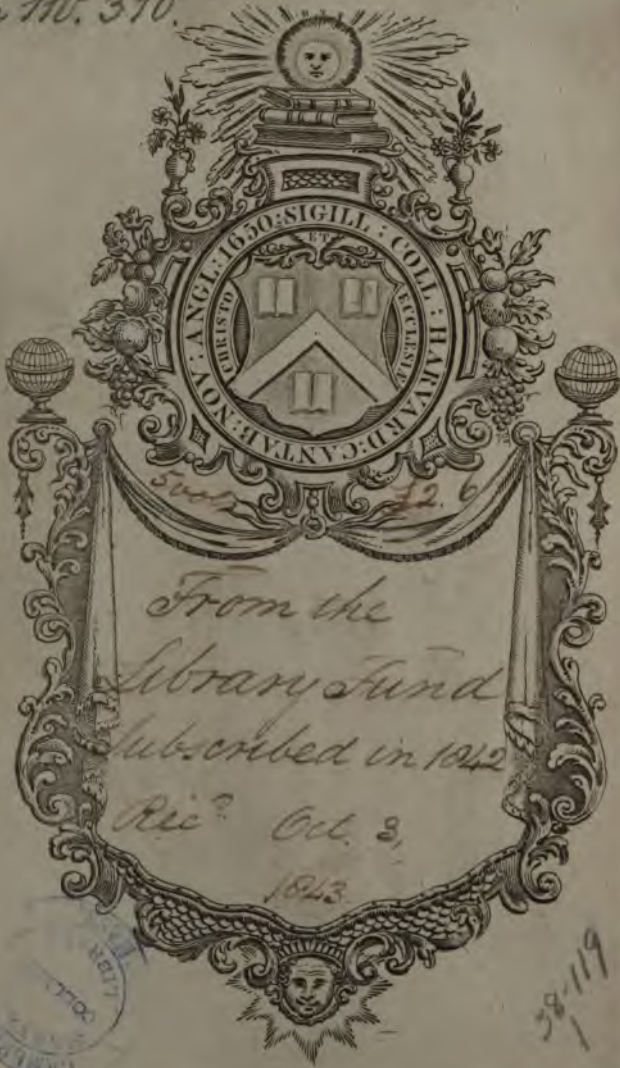 no. 390.
SIGILL : COLL : HARVARD: CANTAB: NOV: ANGL: 1650:
CHRISTO
ET
ECCLESIÆ
5 vols
£2. 6
From the
Library Fund
Subscribed in 1842
Rec.d Oct. 3,
1843.
38-119
1